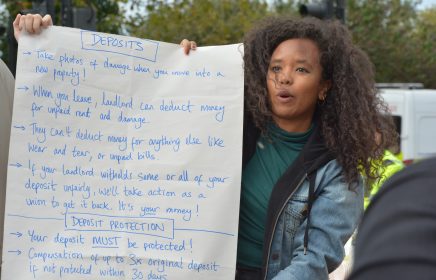 DEPOSITS
→ Take photos of damage when you move into a
new property!
→ When you leave, landlord can deduct money
for unpaid rent and damage.
→ They can't deduct money for anything else like
wear and tear, or unpaid bills
→ If your landlord witholds some or all of your
deposit unfairly, we'll take action as a
union to get it back. It's your money!
DEPOSIT PROTECTION
→ Your deposit MUST be protected!
→ Compensation of up to 3x original deposit
if not protected within 30 days